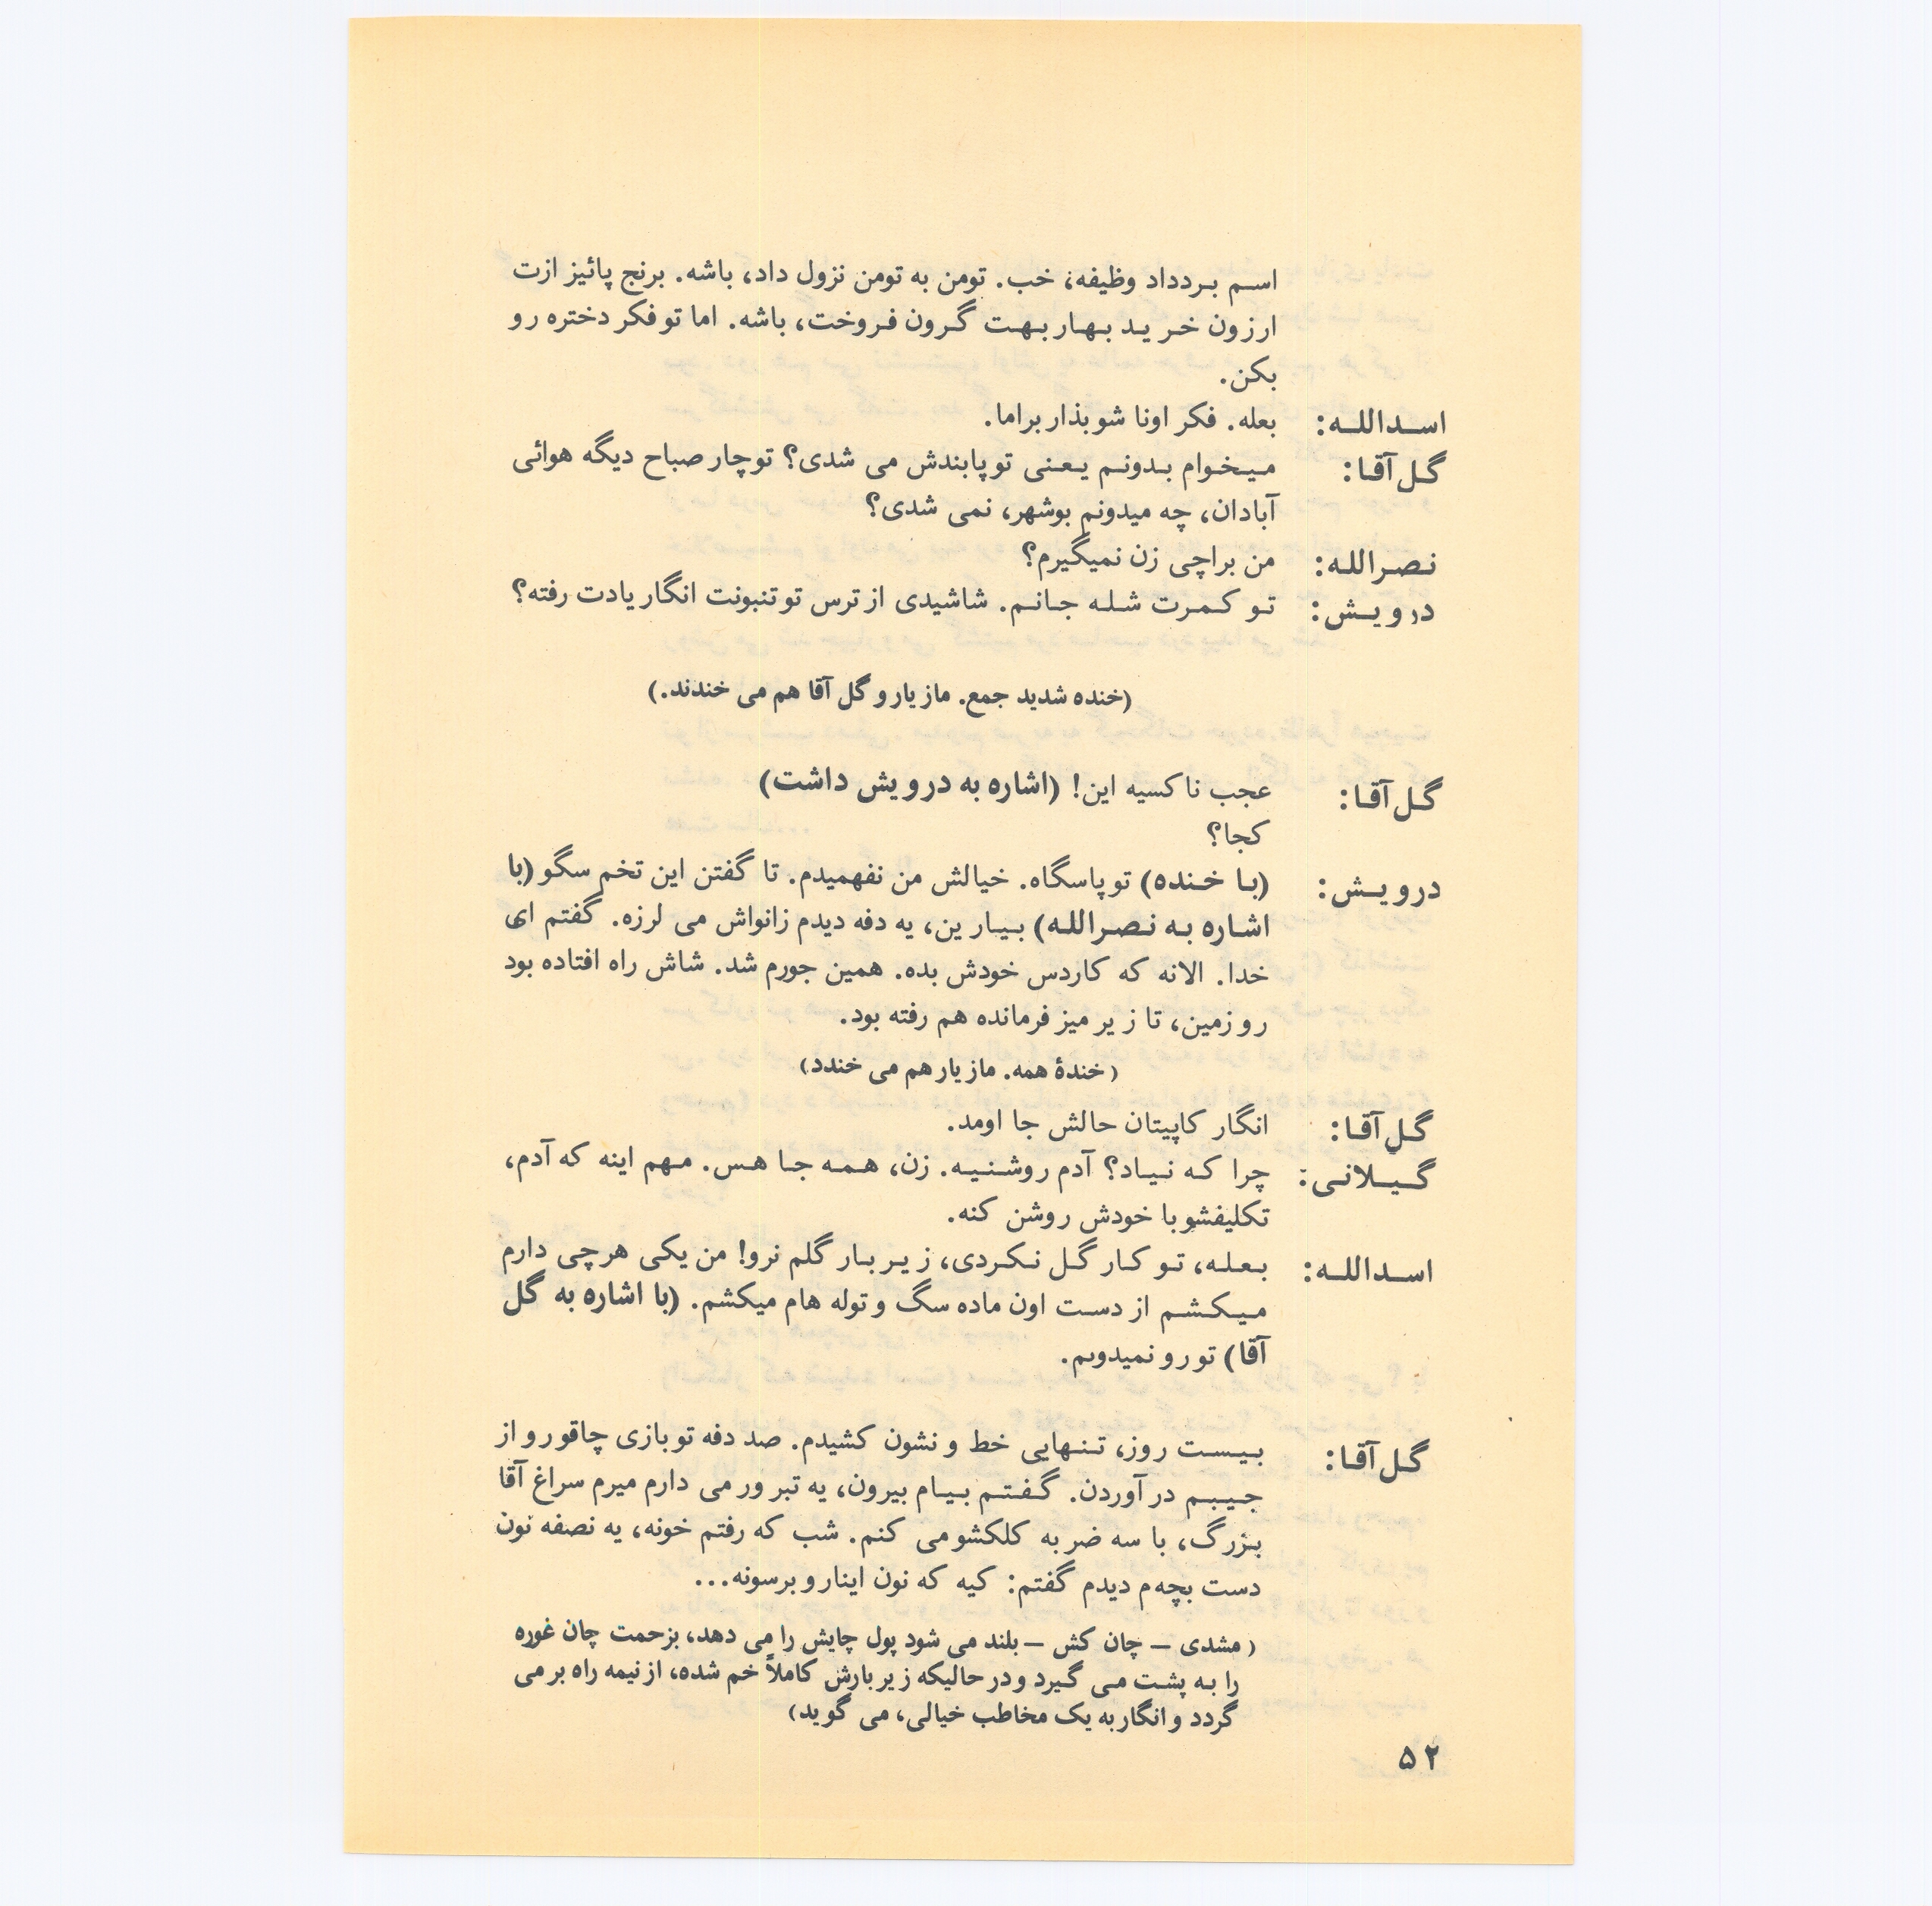 اسم برد داد وظیفه، خب. تومن به تومن نزول داد، باشه. برنج پائیز ازت
ارزون خرید بهار بهت گرون فروخت، باشه. اما تو فکر دختره رو
بکن.
اسدالله: بعله. فکر اونا شو بذار براما.
گل آقا: میخوام بدونم یعنی تو پابندش می شدی؟ تو چار صباح دیگه هوائی
آبادان، چه میدونم بوشهر، نمی شدی؟
نصرالله: من براچی زن نمیگیرم؟
درویش: تو کمرت شله جانم. شاشیدی از ترس تو تنبونت انگار یادت رفته؟
(خنده شدید جمع. مازیار و گل آقا هم می خندند.)
گل آقا: عجب ناکسیه این! (اشاره به درویش داشت)
کجا؟
درویش: (با خنده) تو پاسگاه. خیالش من نفهمیدم. تا گفتن این تخم سگو (با
اشاره به نصرالله) بیارین، یه دفه دیدم زانواش می لرزه. گفتم ای
خدا. الانه که کاردس خودش بده. همین جورم شد. شاش راه افتاده بود
رو زمین، تا زیر میز فرمانده هم رفته بود.
(خندهٔ همه. مازیار هم می خندد)
گل آقا: انگار کاپیتان حالش جا اومد.
گیلانی: چرا که نیاد؟ آدم روشنیه. زن، همه جا هس. مهم اینه که آدم،
تکلیفشو با خودش روشن کنه.
اسدالله: بعله، تو کار گل نکردی، زیر بار گلم نرو! من یکی هرچی دارم
میکشم از دست اون ماده سگ و توله هام میکشم. (با اشاره به گل
آقا) تو رو نمیدونم.
گل آقا: بیست روز، تنهایی خط و نشون کشیدم. صد دفه تو بازی چاقو رو از
جیبم در آوردن. گفتم بیام بیرون، یه تبر ور می دارم میرم سراغ آقا
بزرگ، با سه ضربه کلکشو می کنم. شب که رفتم خونه، یه نصفه نون
دست بچه م دیدم گفتم: کیه که نون اینارو برسونه...
(مشدی – چان کش – بلند می شود پول چایش را می دهد، بزحمت چان غوره
را به پشت می گیرد و در حالیکه زیر بارش کاملاً خم شده، از نیمه راه بر می
گردد و انگار به یک مخاطب خیالی، می گوید)
۵۲